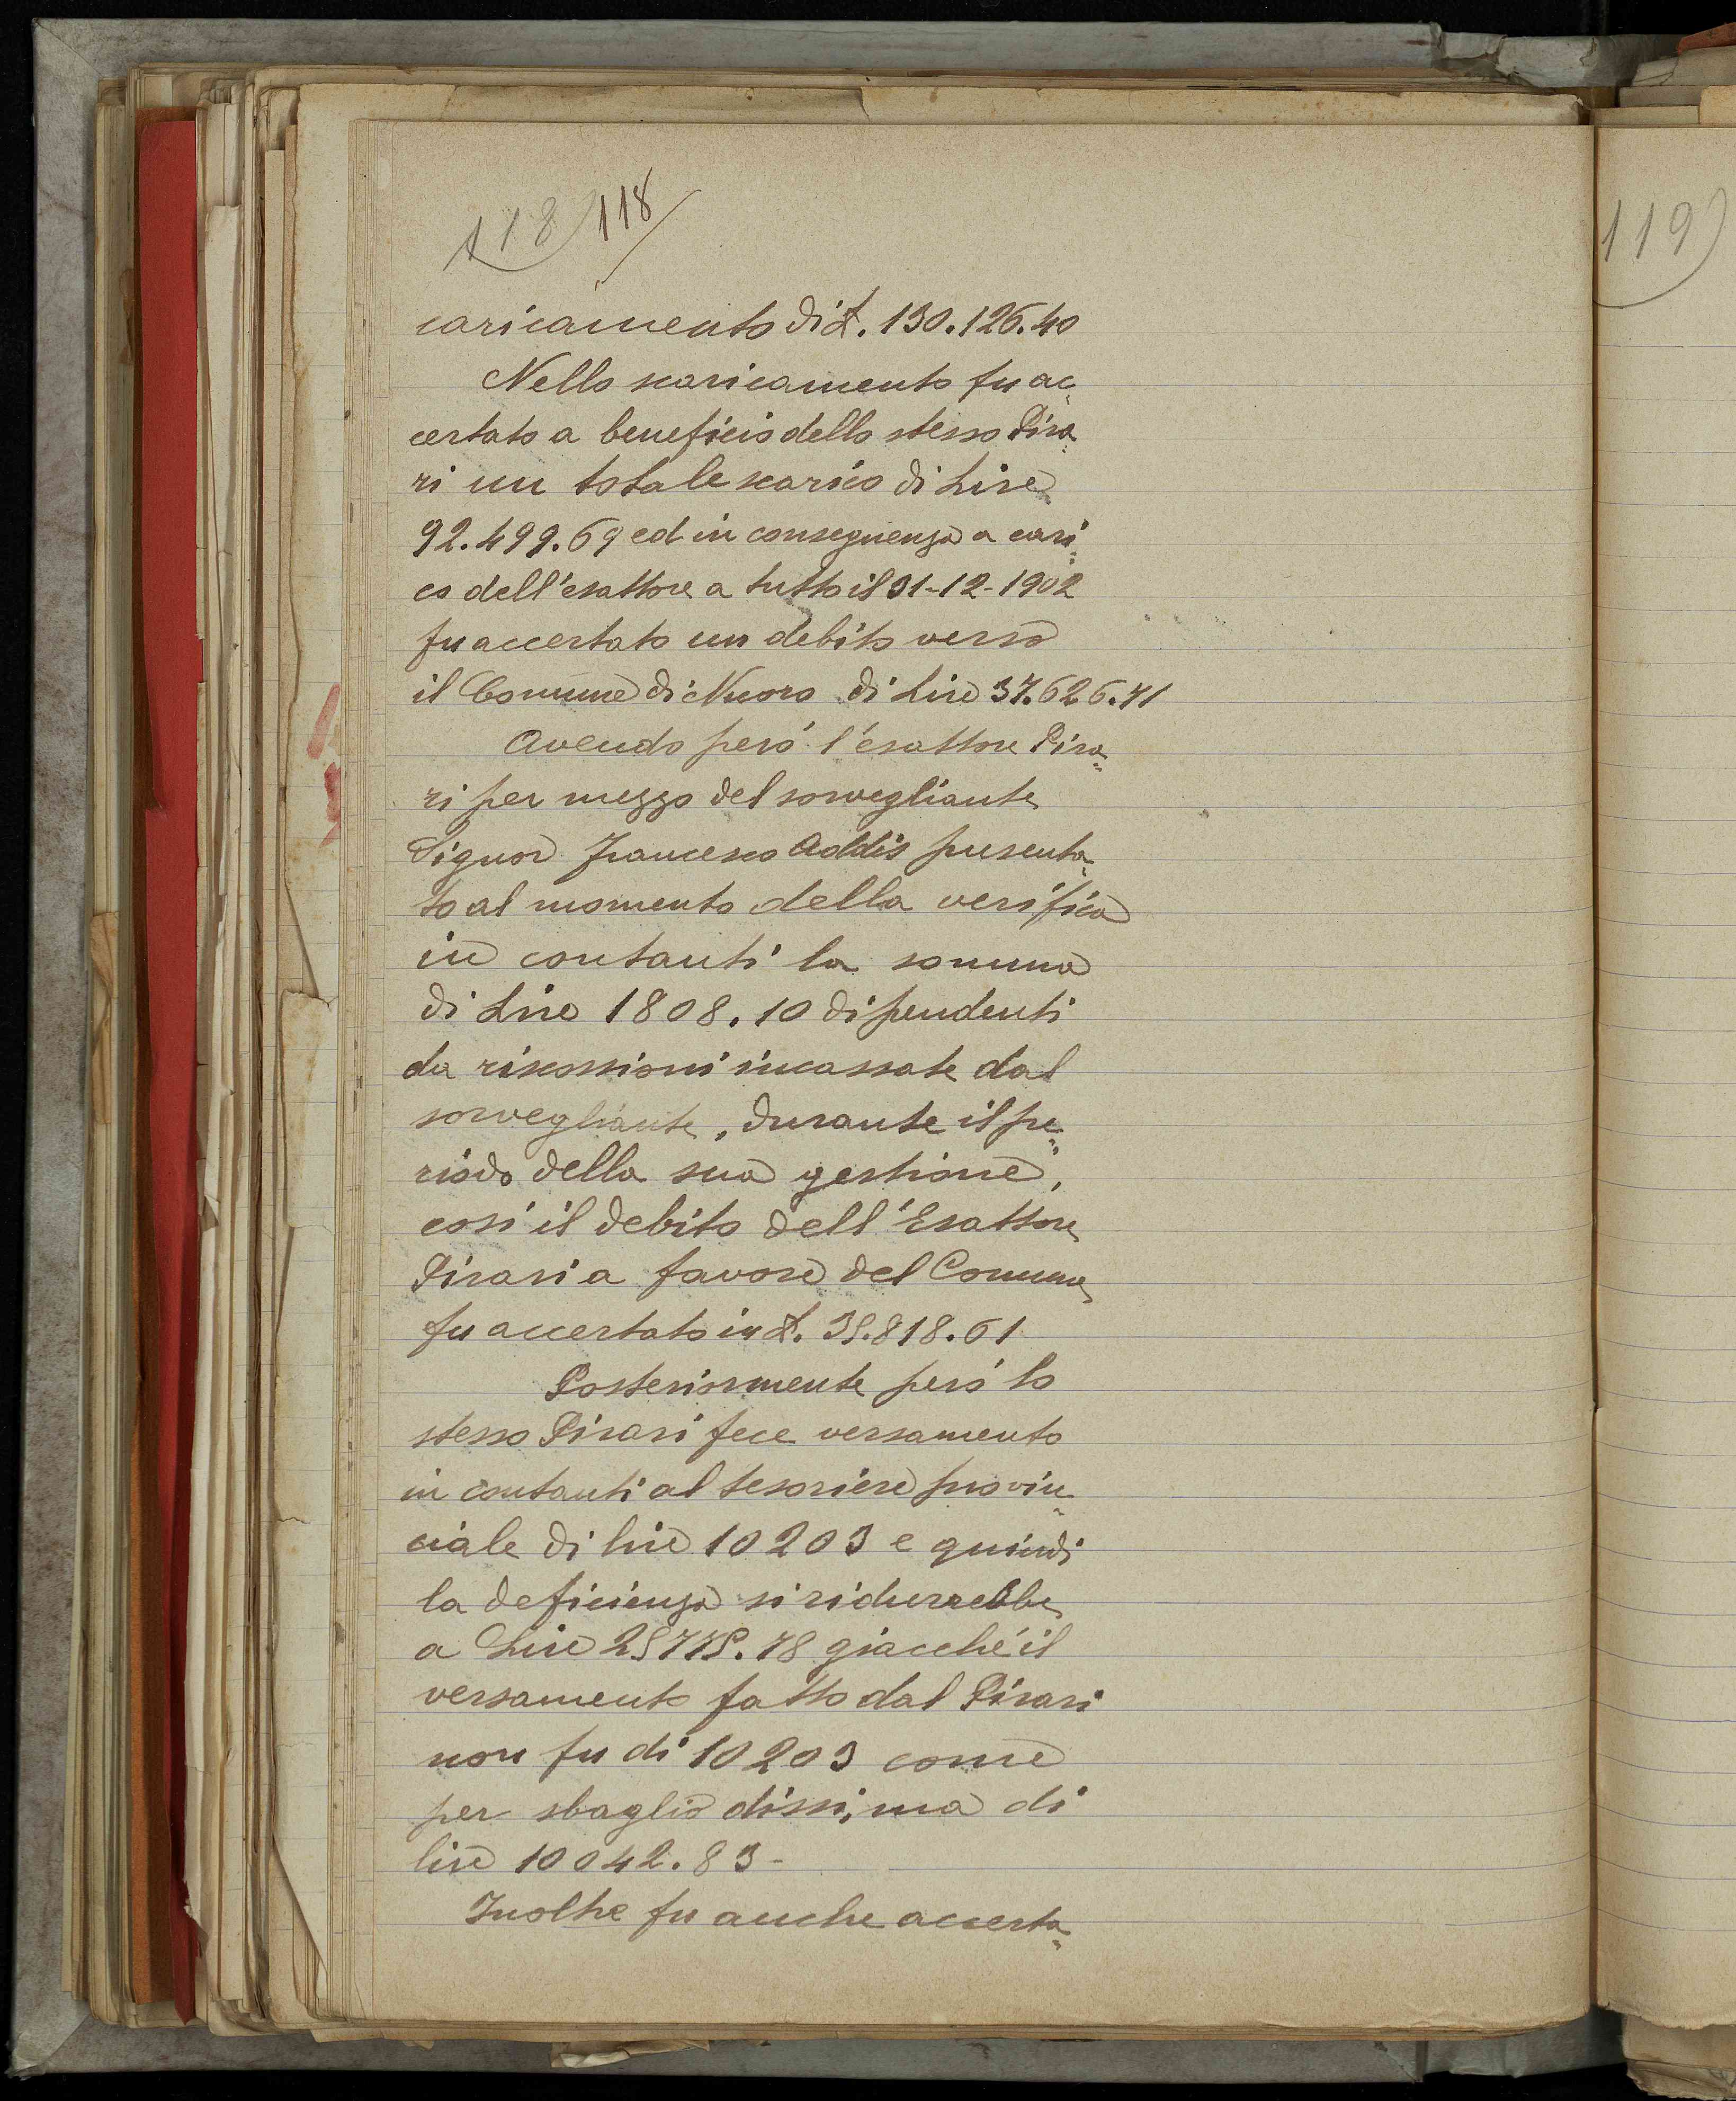 118) 118
caricamento di £. 130.126.40
Nello scaricamento fu ac=
certato a beneficio dello stesso Pira=
ri un totale scarico di Lire
92.499.69 ed in conseguenza a cari=
co dell'esattore a tutto il 31-12-1902
fu accertato un debito verso
il Comune di Nuoro di Lire 37.626.71
Avendo però l'esattore Pira=
ri per mezzo del sorvegliante
Signor Francesco Addis presenta=
to al momento della verifica
in contanti la somma
di Lire 1808.10 dipendenti
da riscossioni incassate dal
sorvegliante, durante il pe=
riodo della sua gestione,
così il debito dell'Esattore
Pirari a favore del Comune
fu accertato in £. 35.818.61
Posteriormente però lo
stesso Pirari fece versamento
in contanti al tesoriere provin=
ciale di lire 10203 e quindi
la deficienza si ridurrebbe
a Lire 25775.78 giacchè il
versamento fatto dal Pirari
non fu di 10203 come
per sbaglio dissi, ma di
lire 10042.83-
Inoltre fu anche accerta=
119)